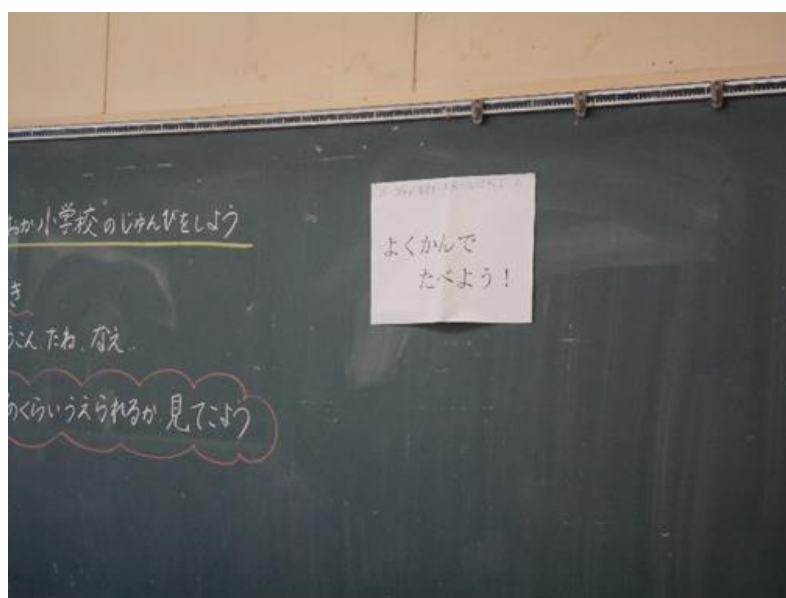 おか小学校"のじゅんびをしよう
き
うこん、たね、なえ
のくらいうえられるか見てこよう
よくかんで
たべよう！